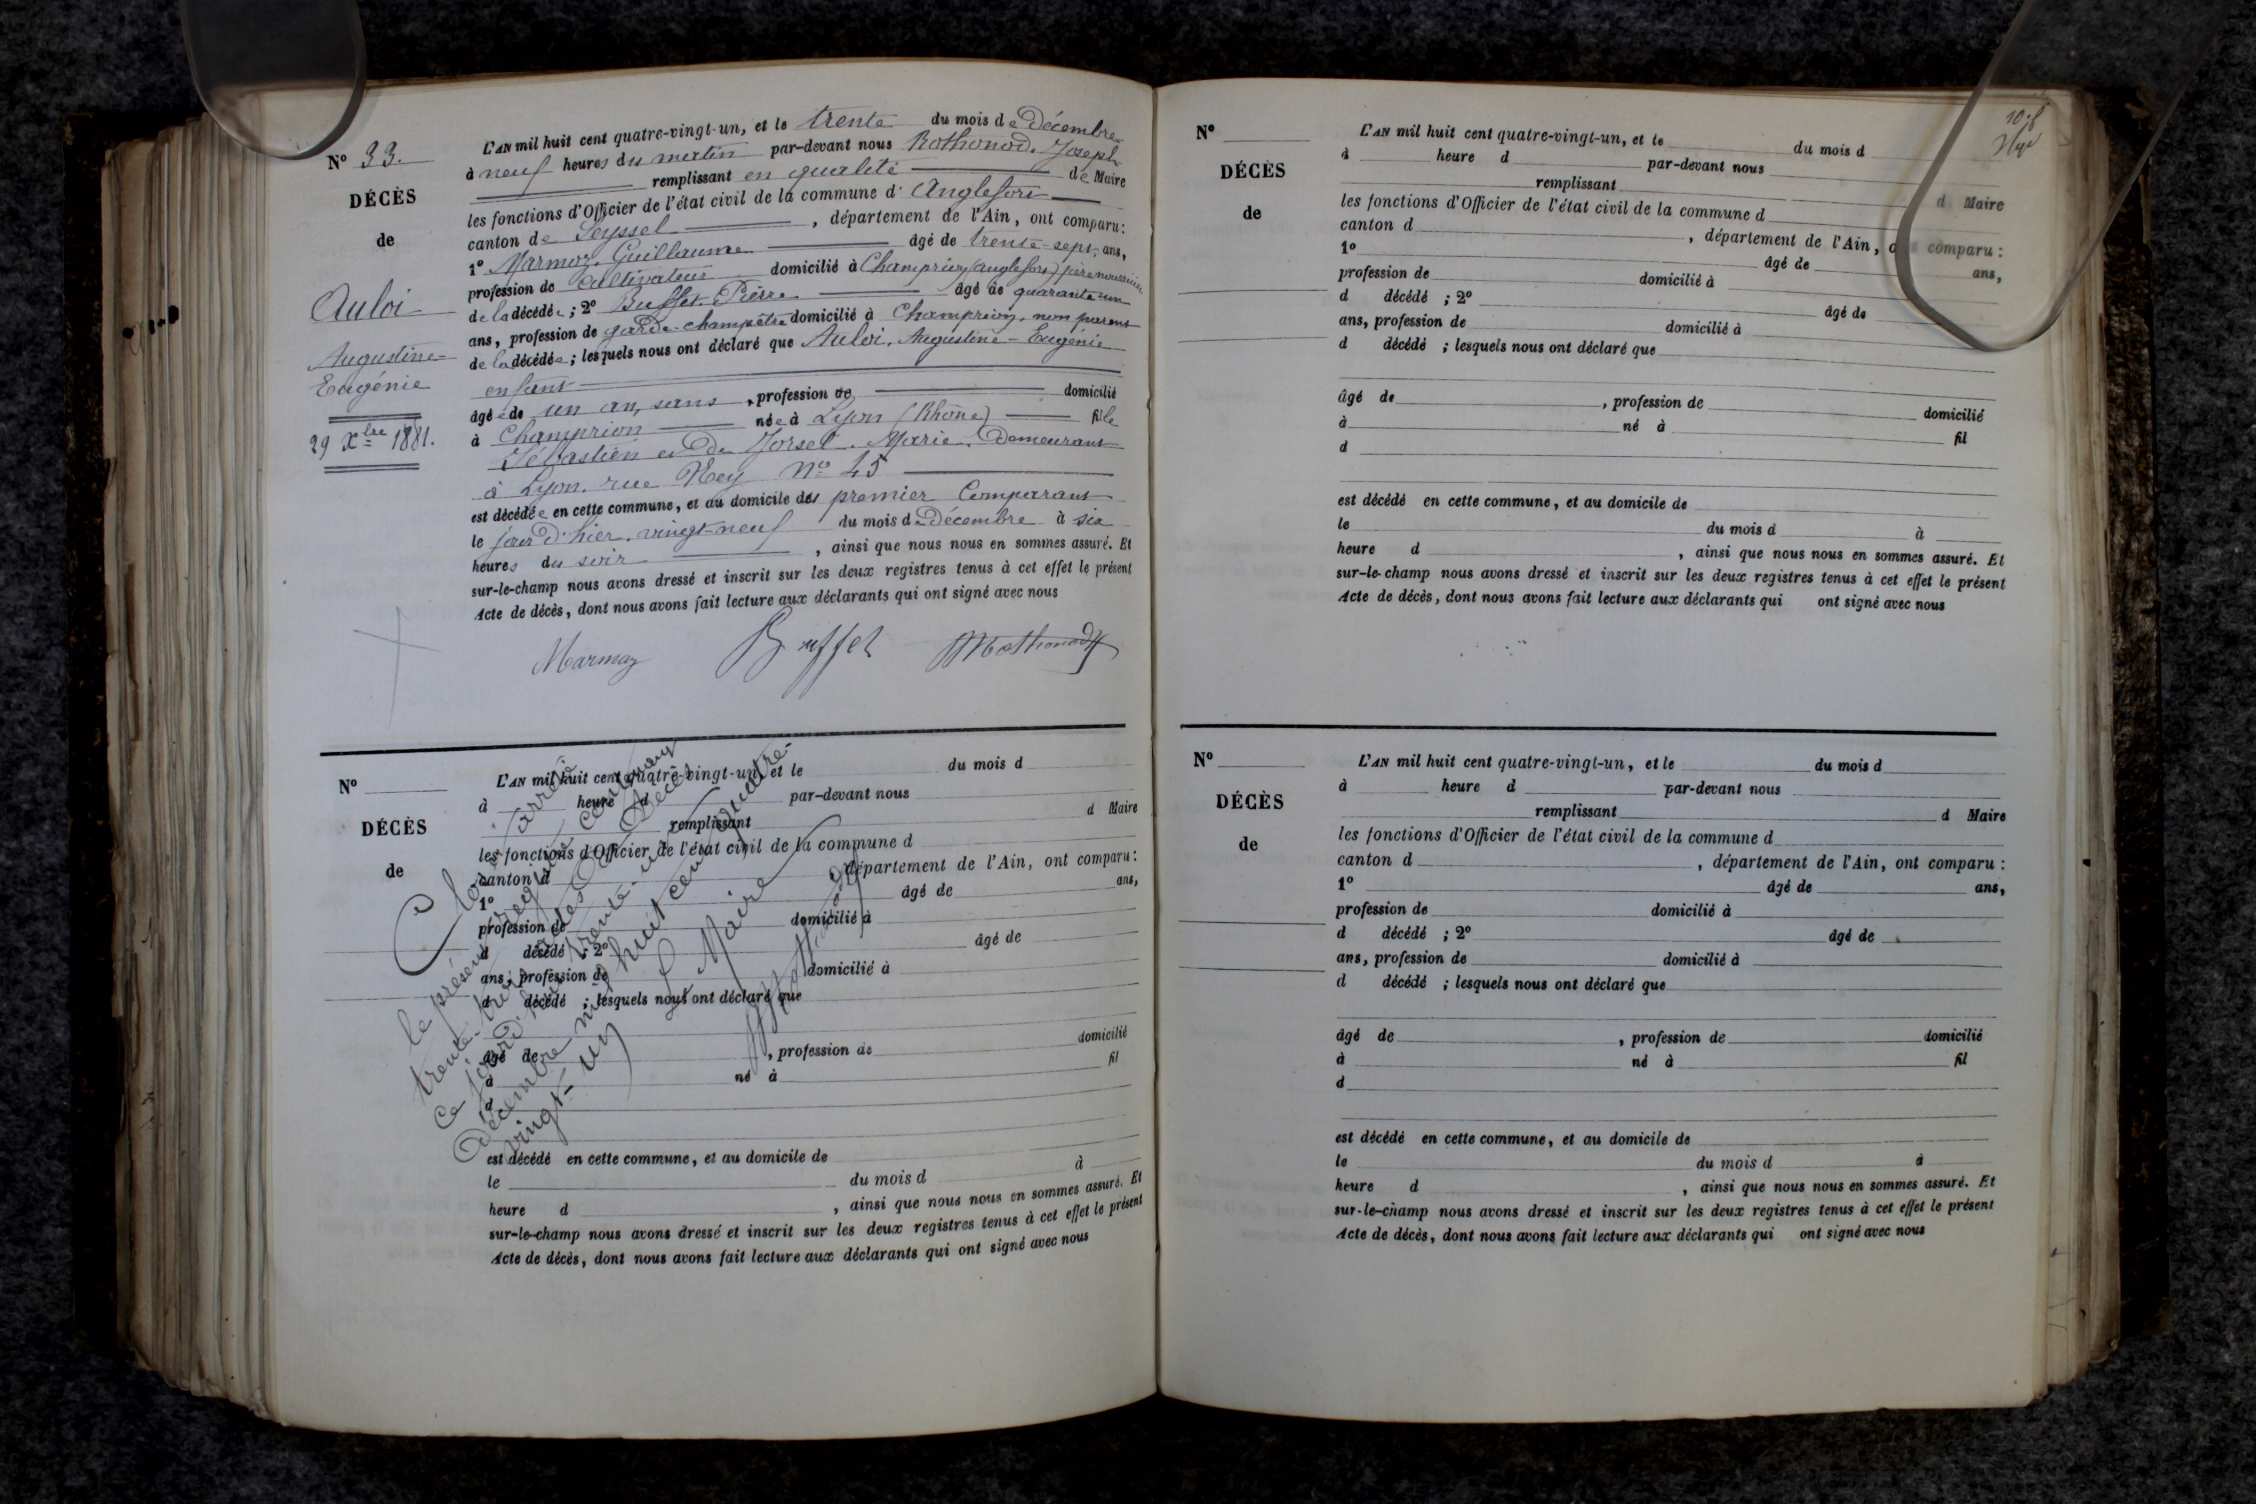 N° 33.
DÉCÈS
de
Auloi
Augustine-
Eugénie
29 Xbre 1881.
L'AN mil huit cent quatre-vingt-un, et le trente du mois de Décembre
à neuf heures du matin par-devant nous Rothonod, Joseph
remplissant en qualité de Maire
les fonctions d'Officier de l'état civil de la commune d'Anglefort
canton de Seyssel, département de l'Ain, ont comparu:
1° Marmoz, Guillaume âgé de trente-sept ans,
profession de cultivateur domicilié à Champrion (anglefort) père nourricier
de la décédée; 2° Buffet Pierre âgé de quarante un
ans, profession de garde-champêtre domicilié à Champrion, non parent
de la décédée; lesquels nous ont déclaré que Auloi, Augustine-Eugénie
enfant
âgée de un an, sans, profession de domicilié
à Champrion née à Lyon (Rhône) fille
Sébastien et de Jorsel, Marie, Demeurant
à Lyon, rue Ney N° 45
est décédée en cette commune, et au domicile du premier Comparant
le jour d'hier, vingt-neuf du mois de Décembre à six
heures du soir, ainsi que nous nous en sommes assuré. Et
sur-le-champ nous avons dressé et inscrit sur les deux registres tenus à cet effet le présent
Acte de décès, dont nous avons fait lecture aux déclarants qui ont signé avec nous
Marmoz Buffet Rothonod
N°
DÉCÈS
de
L'AN mil huit cent quatre-vingt-un, et le du mois d
à heure d par-devant nous
remplissant d Maire
les fonctions d'Officier de l'état civil de la commune d
canton d, département de l'Ain, ont comparu:
1° âgé de ans,
profession de domicilié à
d décédé ; 2° âgé de
ans, profession de domicilié à
d décédé ; lesquels nous ont déclaré que
âgé de, profession de domicilié
à né à fil
d
est décédé en cette commune, et au domicile de
le du mois d à
heure d, ainsi que nous nous en sommes assuré. Et
sur-le-champ nous avons dressé et inscrit sur les deux registres tenus à cet effet le présent
Acte de décès, dont nous avons fait lecture aux déclarants qui ont signé avec nous
Clos et arrêté
le présent registre contenant
trente-trois actes de Décès
ce jourd'hui trente-un
Décembre mil huit cent quatre-
vingt-un
Le Maire
Rothonod
N°
DÉCÈS
de
L'AN mil huit cent quatre-vingt-un, et le du mois d
à heure d par-devant nous
remplissant d Maire
les fonctions d'Officier de l'état civil de la commune d
canton d, département de l'Ain, ont comparu :
1° âgé de ans,
profession de domicilié à
d décédé ; 2° âgé de
ans, profession de domicilié à
d décédé ; lesquels nous ont déclaré que
âgé de, profession de domicilié
à né à fil
d
est décédé en cette commune, et au domicile de
le du mois d à
heure d, ainsi que nous nous en sommes assuré. Et
sur-le-champ nous avons dressé et inscrit sur les deux registres tenus à cet effet le présent
Acte de décès, dont nous avons fait lecture aux déclarants qui ont signé avec nous
N°
DÉCÈS
de
L'AN mil huit cent quatre-vingt-un, et le du mois d
à heure d par-devant nous
remplissant d Maire
les fonctions d'Officier de l'état civil de la commune d
canton d, département de l'Ain, ont comparu :
1° âgé de ans,
profession de domicilié à
d décédé ; 2° âgé de
ans, profession de domicilié à
d décédé ; lesquels nous ont déclaré que
âgé de, profession de domicilié
à né à fil
d
est décédé en cette commune, et au domicile de
le du mois d à
heure d, ainsi que nous nous en sommes assuré. Et
sur-le-champ nous avons dressé et inscrit sur les deux registres tenus à cet effet le présent
Acte de décès, dont nous avons fait lecture aux déclarants qui ont signé avec nous